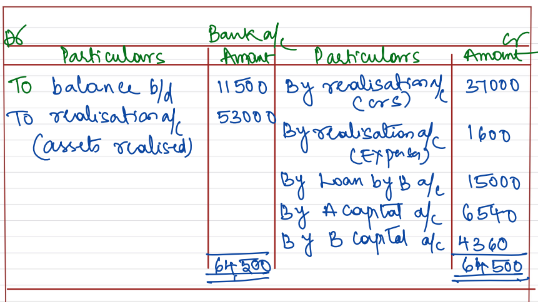 Dr Bank a/c Cr
Particulars Amount Particulars Amount
To balance b/d 11500 By realisation a/c 37000
(crs)
To realisation a/c 53000
(assets realised)
By realisation a/c 1600
(Expenses)
By Loan by B a/c 15000
By A capital a/c 6540
By B capital a/c 4360
64500 64500